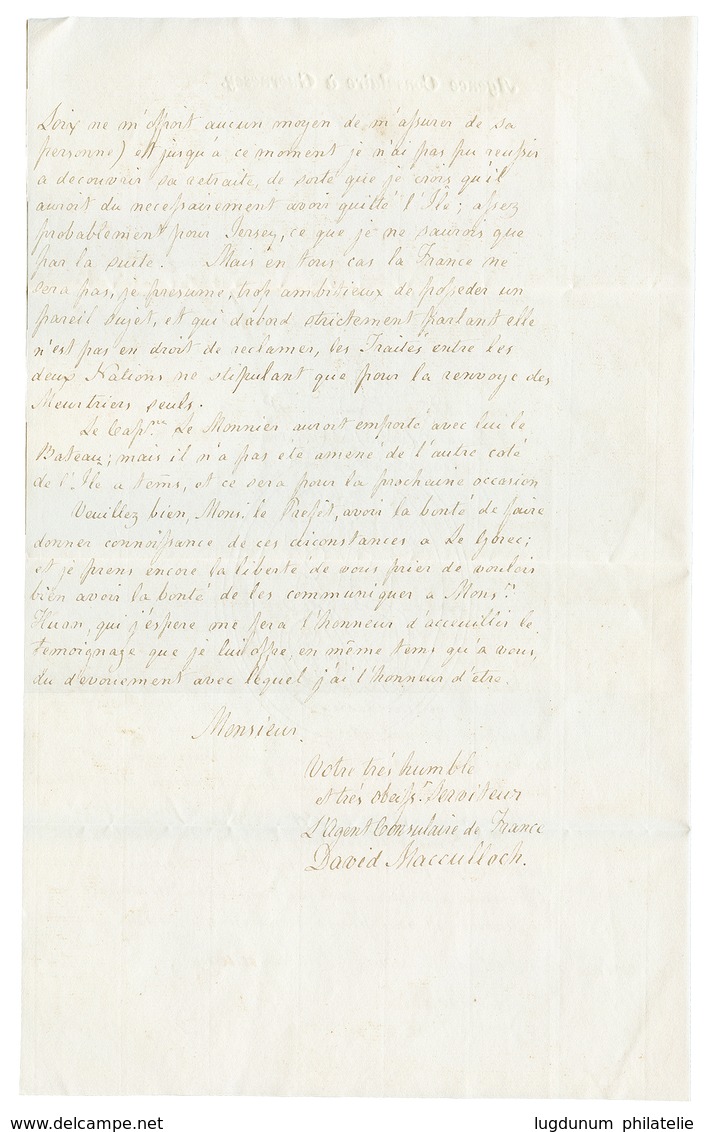 Loix ne m'offroit aucun moyen de m'assurer de sa
personne) et jusqu'a ce moment je n'ai pas pu reussir
a decouvrir sa retraite, de sorte que je crois qu'il
auroit du necessairement avoir quitté l'Ile; assez
probablement pour Jersey, ce que je ne saurois que
par la suite. Mais en tous cas la France ne
sera pas, je presume, trop ambitieux de posseder un
pareil sujet, et qui d'abord strictement parlant elle
n'est pas en droit de reclamer, les Traités entre les
deux Nations ne stipulant que pour la renvoye des
Meurtriers seuls.
Le Capne. Le Monnier auroit emporté avec lui le
Bateau; mais il n'a pas eté amené de l'autre coté
de l'Ile a tems, et ce sera pour la prochaine occasion
Veuillez bien, Mons. le Prefêt, avoir la bonté de faire
donner connoissance de ces circonstances a Le Gorec;
et je prens encore la liberté de vous prier de vouloir
bien avoir la bonté de les communiquer a Monsr.
Huan, qui j'espere me fera l'honneur d'accueillir le
temoignage que je lui offre, en même tems qu'a vous,
du devouement avec lequel j'ai l'honneur d'etre.
Monsieur,
Votre trés humble
et trés obeisst. Serviteur
L'Agent Consulaire de France
David Macculloch.
www.delcampe.net
lugdunum philatelie